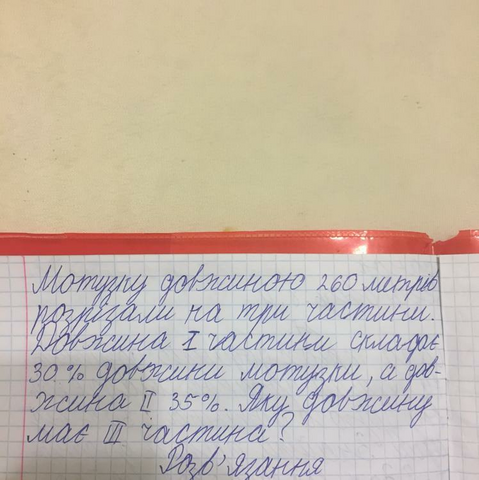 Мотузку довжиною 260 метрів
розрізали на три частини.
Довжина I частини складає
30% довжини мотузки, а дов-
жина II 35%. Яку довжину
має III частина?
Розв'язання